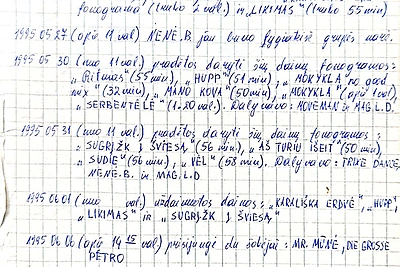 fonograma (truko 2 val.) ir „LIKIMAS" (truko 55 min)
1995 05 27 (apie 19 val.) NENĖ. B. jau buvo grupės narė.
1995 05 30 (nuo 11 val.) pradėtos daryti šių dainų fonogramos:
„Ritmas" (55 min), „HUPP" (51 min), „MOKYKLA" no good
mix" (32 min), „MANO KOVA" (50 min), „MOKYKLA" (apie 1 val.),
„SERBENTĖLĖ" (1.20 val.). Dalyvavo: MOVEMAN ir MAG.L.D.
1995 05 31 (nuo 11 val.) pradėtos daryti šių dainų fonogramos:
„SUGRĮŽK Į ŠVIESĄ" (56 min), „AŠ TURIU IŠEIT" (50 min),
„SUDIE" (56 min), „VĖL" (58 min). Dalyvavo: TRIKE DANCE,
NENĖ.B. ir MAG.L.D
1995 06 01 (nuo val.) užbaigtos dainos: „KARALIŠKA ERDVĖ", „HUPP",
„LIKIMAS" ir „SUGRĮŽK Į ŠVIESĄ"
1995 06 06 (apie 14 15 val.) prisijungė du šokėjai: MR. MŪNĖ, DIE GROSSE
PĖTRO